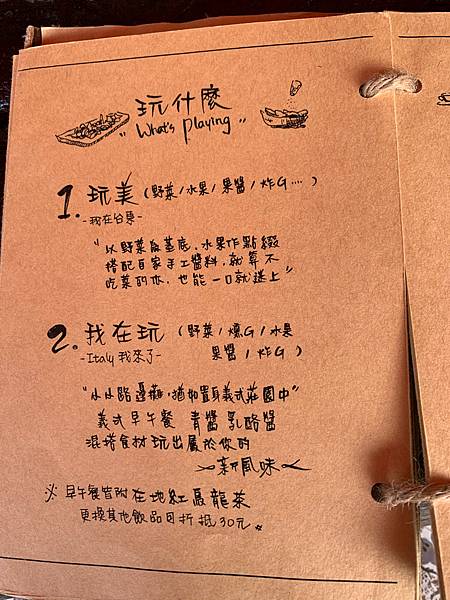 玩什麼
"What's playing"
1. 玩美（野菜/水果/果醬/炸G....）
-我在台東-
"以野菜為基底，水果作點綴
搭配自家手工醬料，就算不
吃菜的你，也能一口就迷上"
2. 我在玩（野菜/燻G/水果
果醬/炸G）
-Italy 我來了-
"小小路邊攤，猶如置身義式莊園中"
義式早午餐 青醬 乳酪醬
混搭食材玩出屬於你的
~新風味~
※ 早午餐皆附在地紅烏龍茶
更換其他飲品可折抵30元。